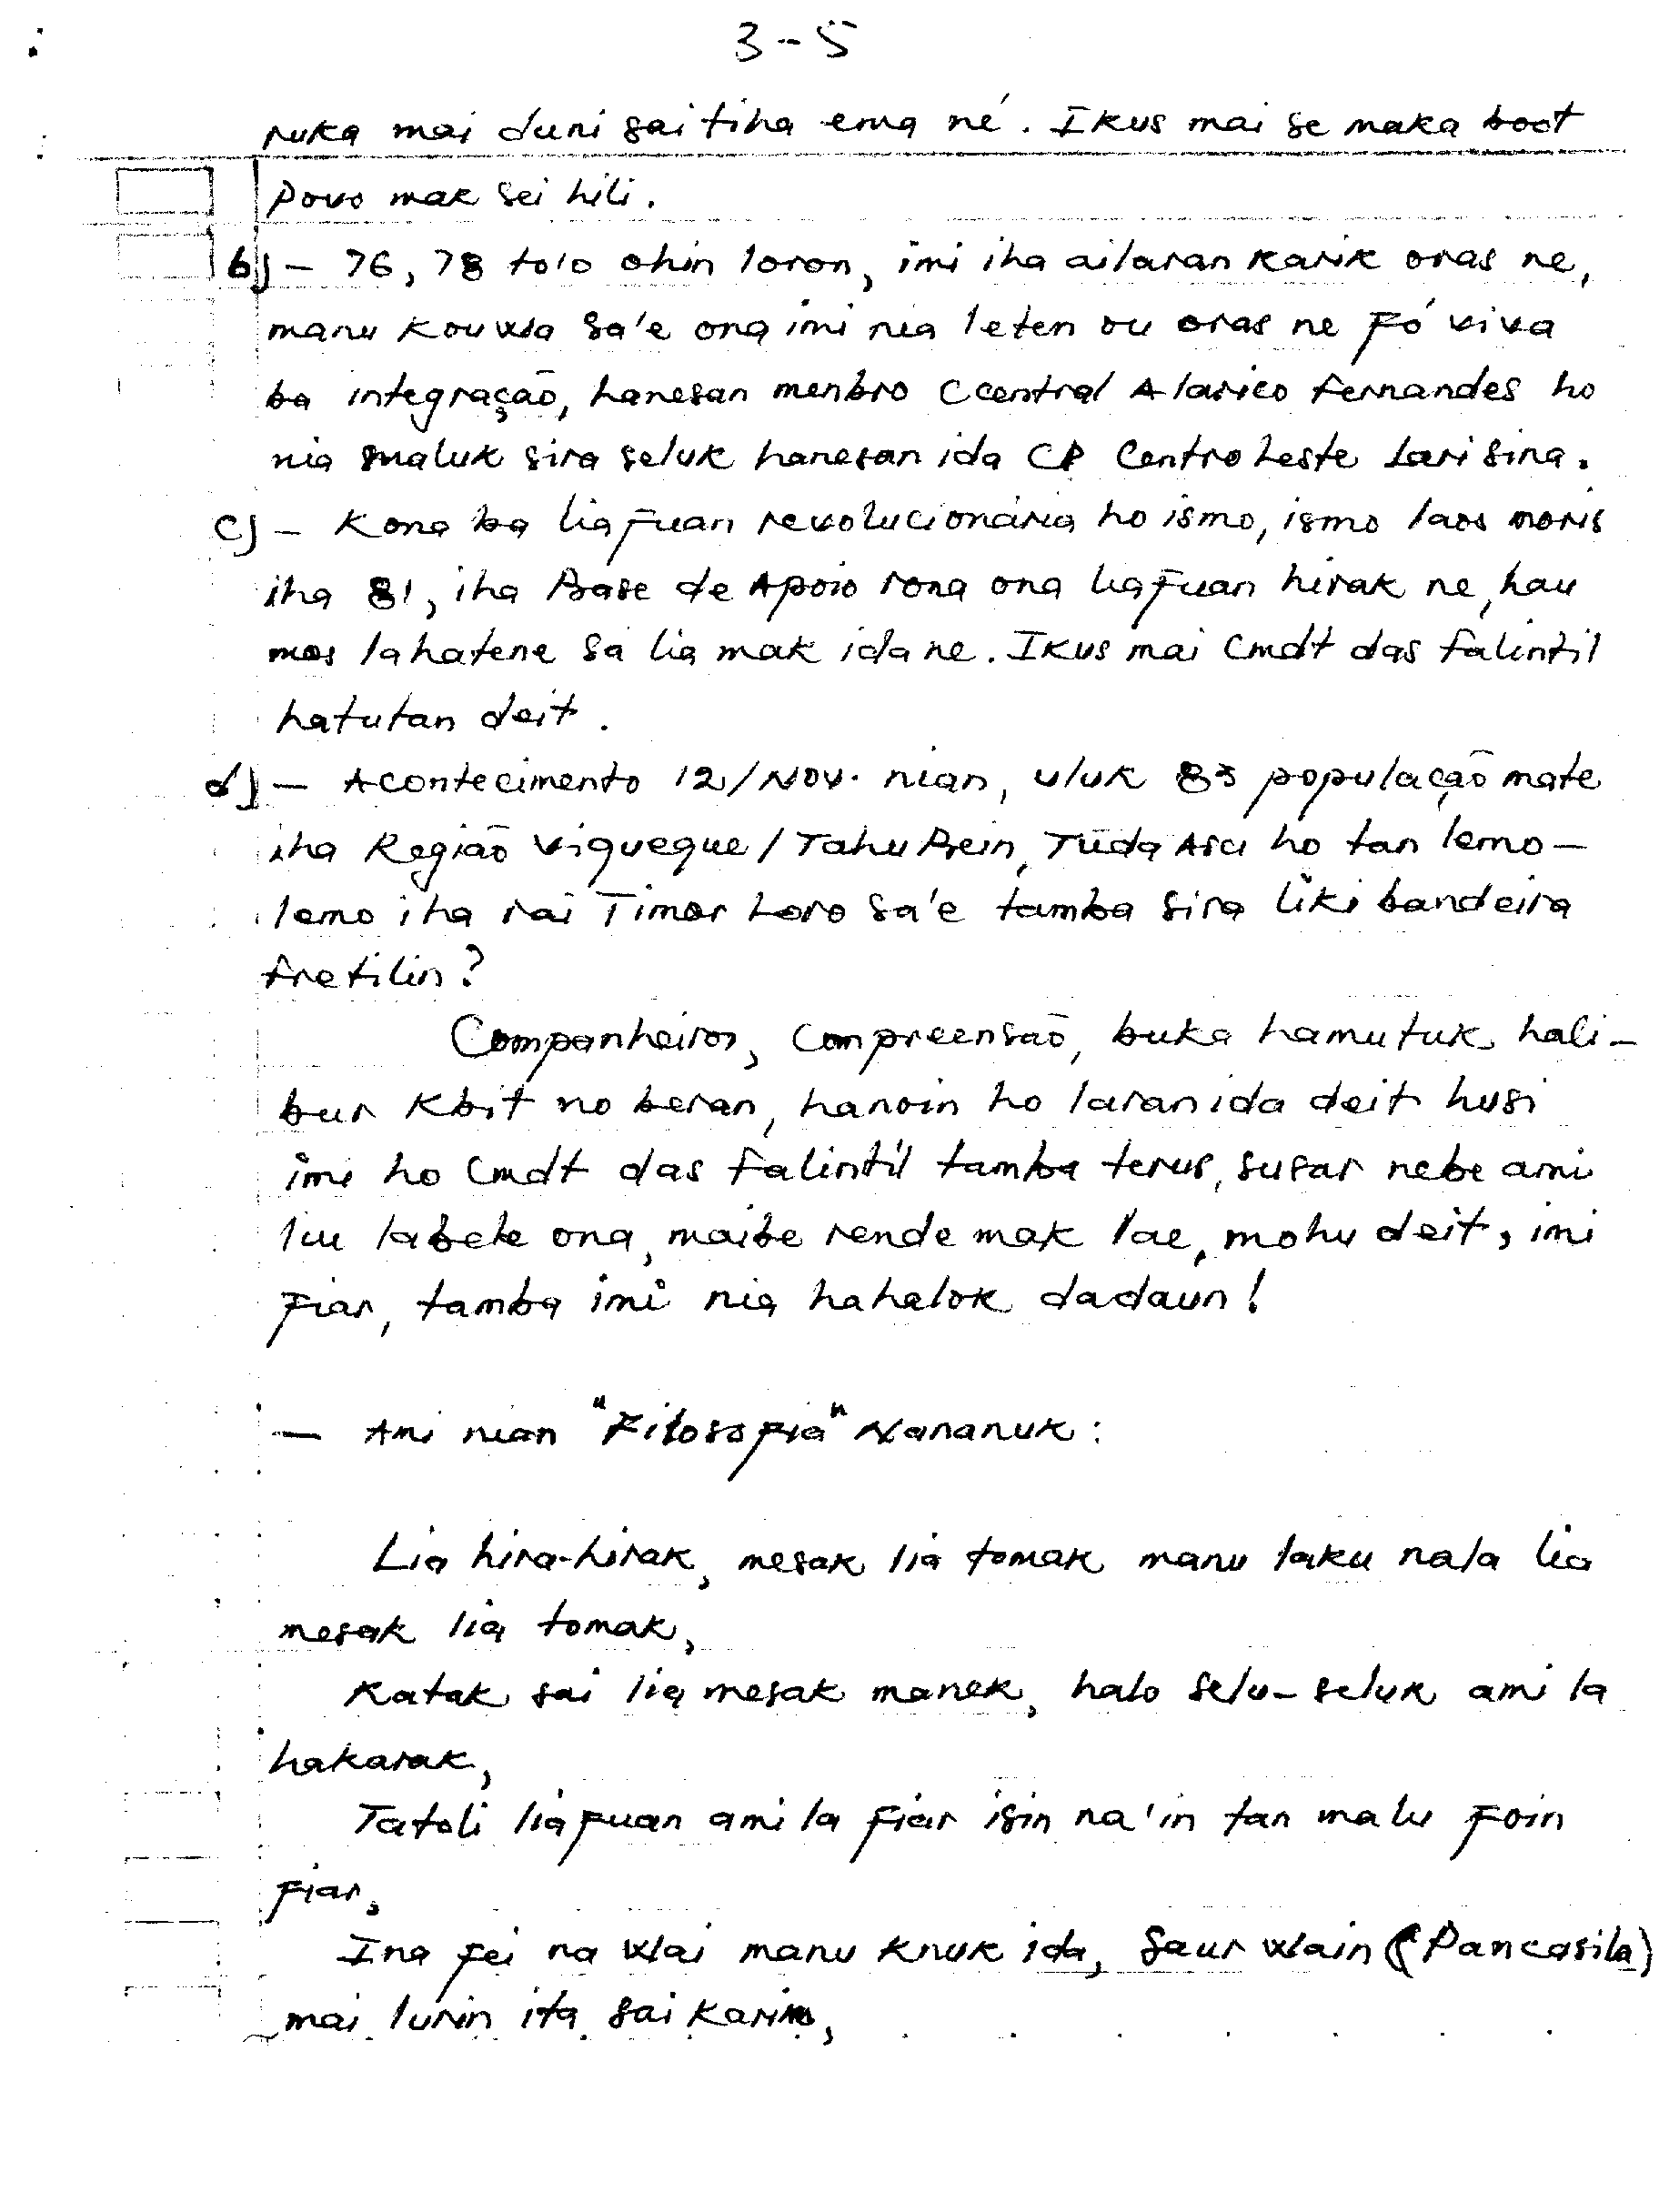 3-5
ruka mai duni sai tiha ema né. Ikus mai se maka boot
Povo mak sei hili.
b) - 76, 78 to'o ohin loron, imi iha ailaran karik oras ne,
manu kouwa sa'e ona imi nia leten ou oras ne fó viva
ba integração, hanesan menbro Ccentral Alarico Fernandes ho
nia maluk sira seluk hanesan ida CP Centro Leste Lari Sina.
c) - Kona ba liafuan revolucionária ho ismo, ismo laos moris
iha 81, iha Base de Apoio rona ona liafuan hirak ne, hau
mos la hatene sa lia mak ida ne. Ikus mai Cmdt das Falintil
hatutan deit.
d) - Acontecimento 12/Nov. nian, uluk 83 população mate
iha Região Viqueque/Tahu Bein, Tuda Asci ho tan lemo-
lemo iha rai Timor Loro Sa'e tamba sira liki bandeira
Fretilin?
Companheiros, Compreensão, buka hamutuk hali-
bur Kbit no beran, hanoin ho laran ida deit husi
imi ho Cmdt das Falintil tamba terus, susar nebe ami
liu labele ona, maibe rende mak lae, mohu deit, imi
fiar, tamba imi nia hahalok dadaun!
- Ami nian "Filosofia" Nananuk:
Lia hira-hirak, mesak lia tomak manu laku nala lia
mesak lia tomak,
Katak sai lia mesak manek, halo selu-seluk ami la
hakarak,
Tatoli liafuan ami la fiar isin na'in tan malu foin
fiar,
Ina fei na wai manu knuk ida, Saur wain (Pancasila)
mai lurin ita sai karin,